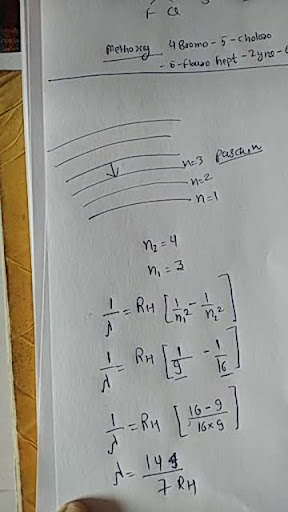 F Cl
Methoxy 4 Bromo - 5 - Choloro
- 6 - flouro hept - 2yne -
n=3 Paschen
n=2
n=1
n₂ = 4
n₁ = 3
1/λ = RH [1/n₁² - 1/n₂²]
1/λ = RH [1/9 - 1/16]
1/λ = RH [16-9/16×9]
λ = 144/7 RH